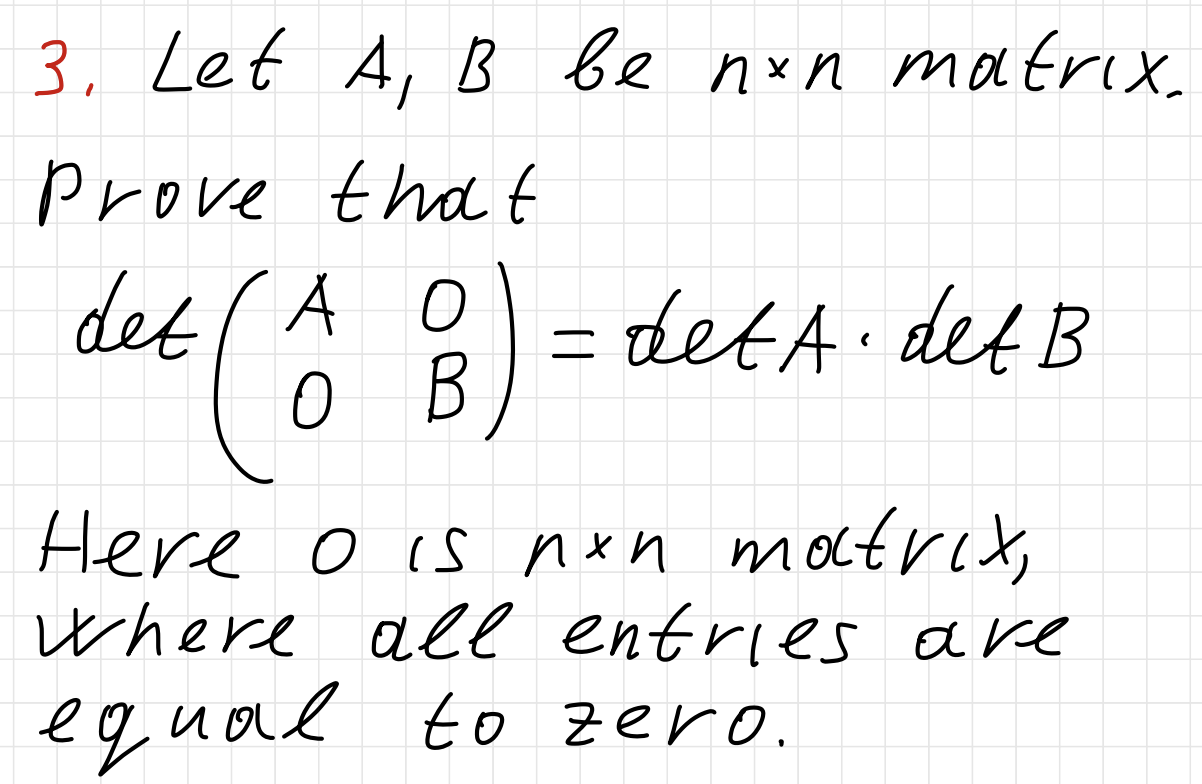 3. Let A, B be n×n matrix.
Prove that
det ( A 0
0 B ) = det A · det B
Here 0 is n×n matrix,
where all entries are
equal to zero.